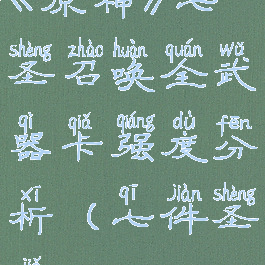 《原神》七
shèng zhào huàn quán wǔ
圣召唤全武
qì qiǎ qiáng dù fēn
器卡强度分
xī qī jiàn shèng
析（七件圣